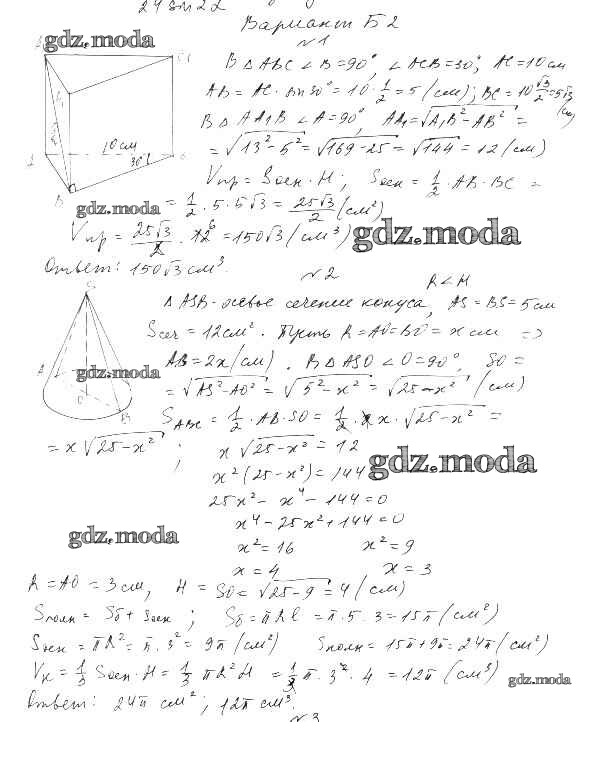 Вариант Б2
gdz.moda
№1
В △ ABC ∠B = 90°, ∠ACB = 30°, AC = 10 см
AB = AC · sin 30° = 10 · 1/2 = 5 (см); BC = 10 √3/2 = 5√3 (см)
В △ AA₁B ∠A = 90°, AA₁ = √(A₁B² − AB²) =
= √(13² − 5²) = √(169 − 25) = √144 = 12 (см)
10 см
30°
B
Vпр = Sосн · H; Sосн = 1/2 · AB · BC =
gdz.moda
= 1/2 · 5 · 5√3 = 25√3/2 (см²)
Vпр = 25√3/2 · 12 6 = 150√3 (см³)
gdz.moda
Ответ: 150√3 см³.
№2
R < H
S
△ ASB - осевое сечение конуса, AS = BS = 5 см
Sсеч = 12 см². Пусть R = AO = BO = x см =>
AB = 2x (см). В △ ASO ∠O = 90°, SO =
gdz.moda
A
O
B
= √(AS² − AO²) = √(5² − x²) = √(25 − x²) (см)
SABC = 1/2 · AB · SO = 1/2 · 2x · √(25 − x²) =
= x √(25 − x²); x √(25 − x²) = 12
gdz.moda
x² (25 − x²) = 144
25x² − x⁴ − 144 = 0
x⁴ − 25x² + 144 = 0
gdz.moda
x² = 16 x² = 9
x = 4 x = 3
R = AO = 3 см, H = SO = √(25 − 9) = 4 (см)
Sполн = Sб + Sосн; Sб = πRl = π · 5 · 3 = 15π (см²)
Sосн = πR² = π · 3² = 9π (см²) Sполн = 15π + 9π = 24π (см²)
Vк = 1/3 Sосн · H = 1/3 πR²H = 1/3 π · 3² · 4 = 12π (см³)
gdz.moda
Ответ: 24π см²; 12π см³.
№3